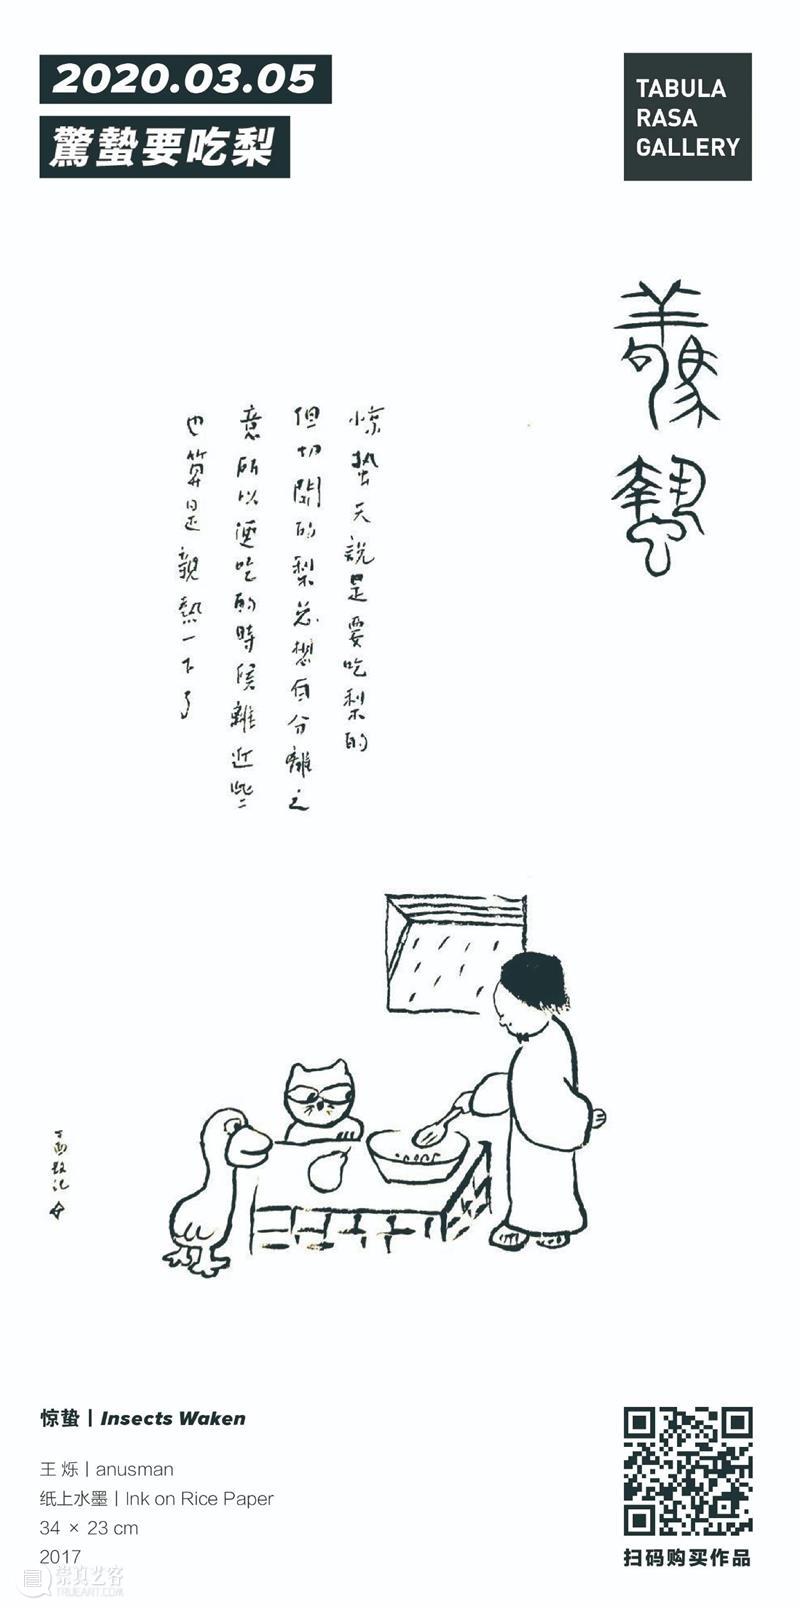 2020.03.05
驚蟄要吃梨
TABULA
RASA
GALLERY
驚蟄
惊蛰天說是要吃梨的
但切開的梨总想有分離之
意所以便吃的時候離近些
也算是親熱一下了
丁酉
惊蛰 | Insects Waken
王 烁 | anusman
纸上水墨 | Ink on Rice Paper
34 × 23 cm
2017
扫码购买作品
崇真艺客
TRUEART.COM